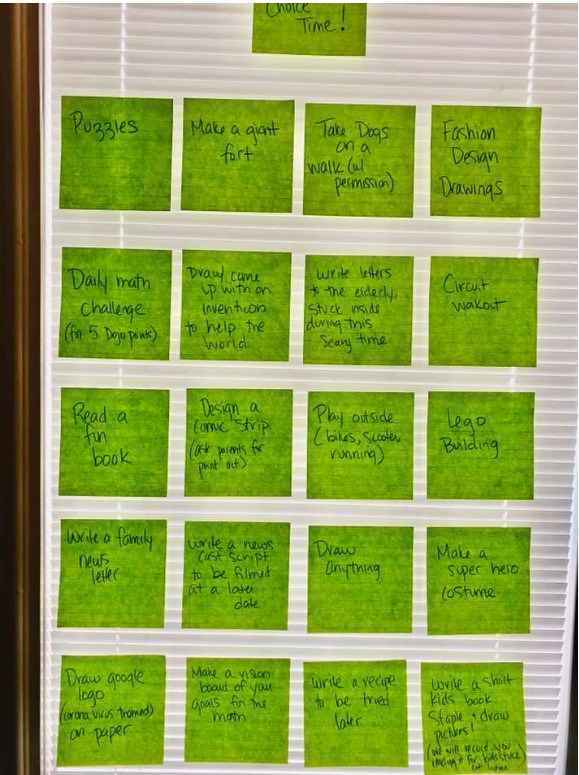 Choice
Time!
Puzzles
Make a giant
fort
Take Dogs
on a
walk (w/
permission)
Fashion
Design
Drawings
Daily math
challenge
(for 5 Dojo points)
Draw/come
up with an
invention
to help the
world
Write letters
to the elderly,
stuck inside
during this
scary time
Circuit
wakout
Read a
fun
book
Design a
comic strip
(ask parents for
print out)
Play outside
(bikes, scooter,
running)
Lego
Building
Write a family
news
letter
Write a news
cast script
to be filmed
at a later
date
Draw
anything
Make a
super hero
costume
Draw google
logo
(corona virus themed)
on paper
Make a vision
board of you
goals for the
math
Write a recipe
to be tried
later
Write a short
kids book.
Staple & draw
pictures!
(we will record you
reading it for kids stuck
at home